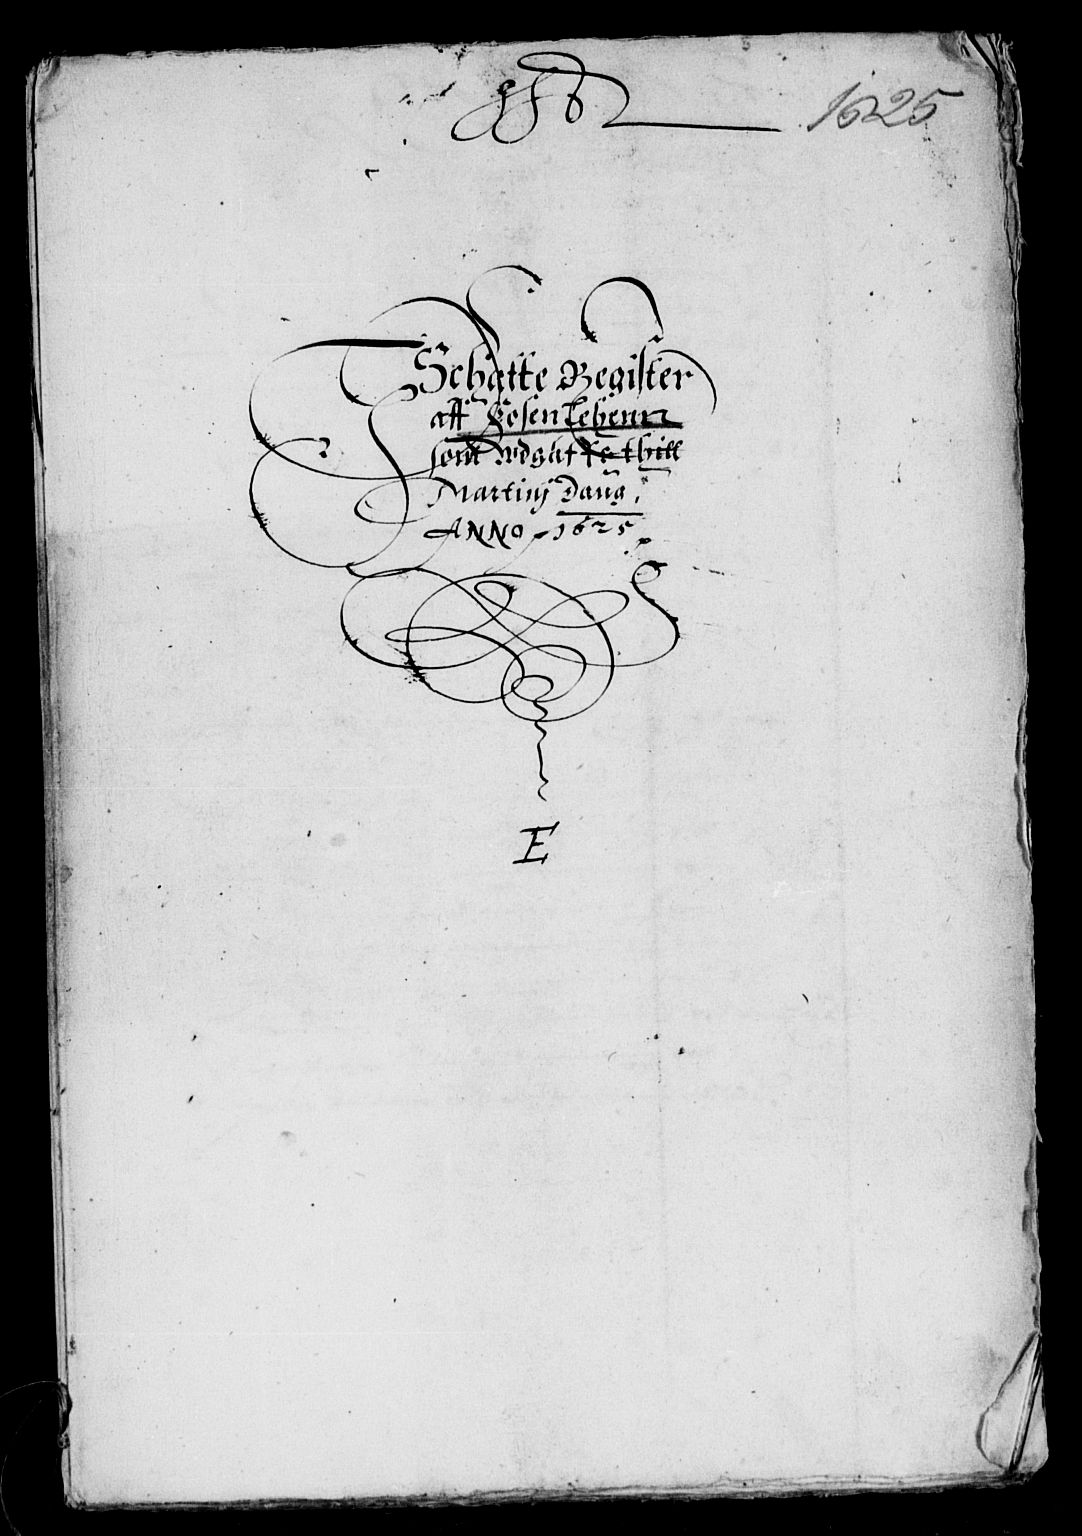 1625
Schatte Register
aff Rosenlehenn
som Udgiffues thill
Martinj Daug.
ANNO 1625.
E